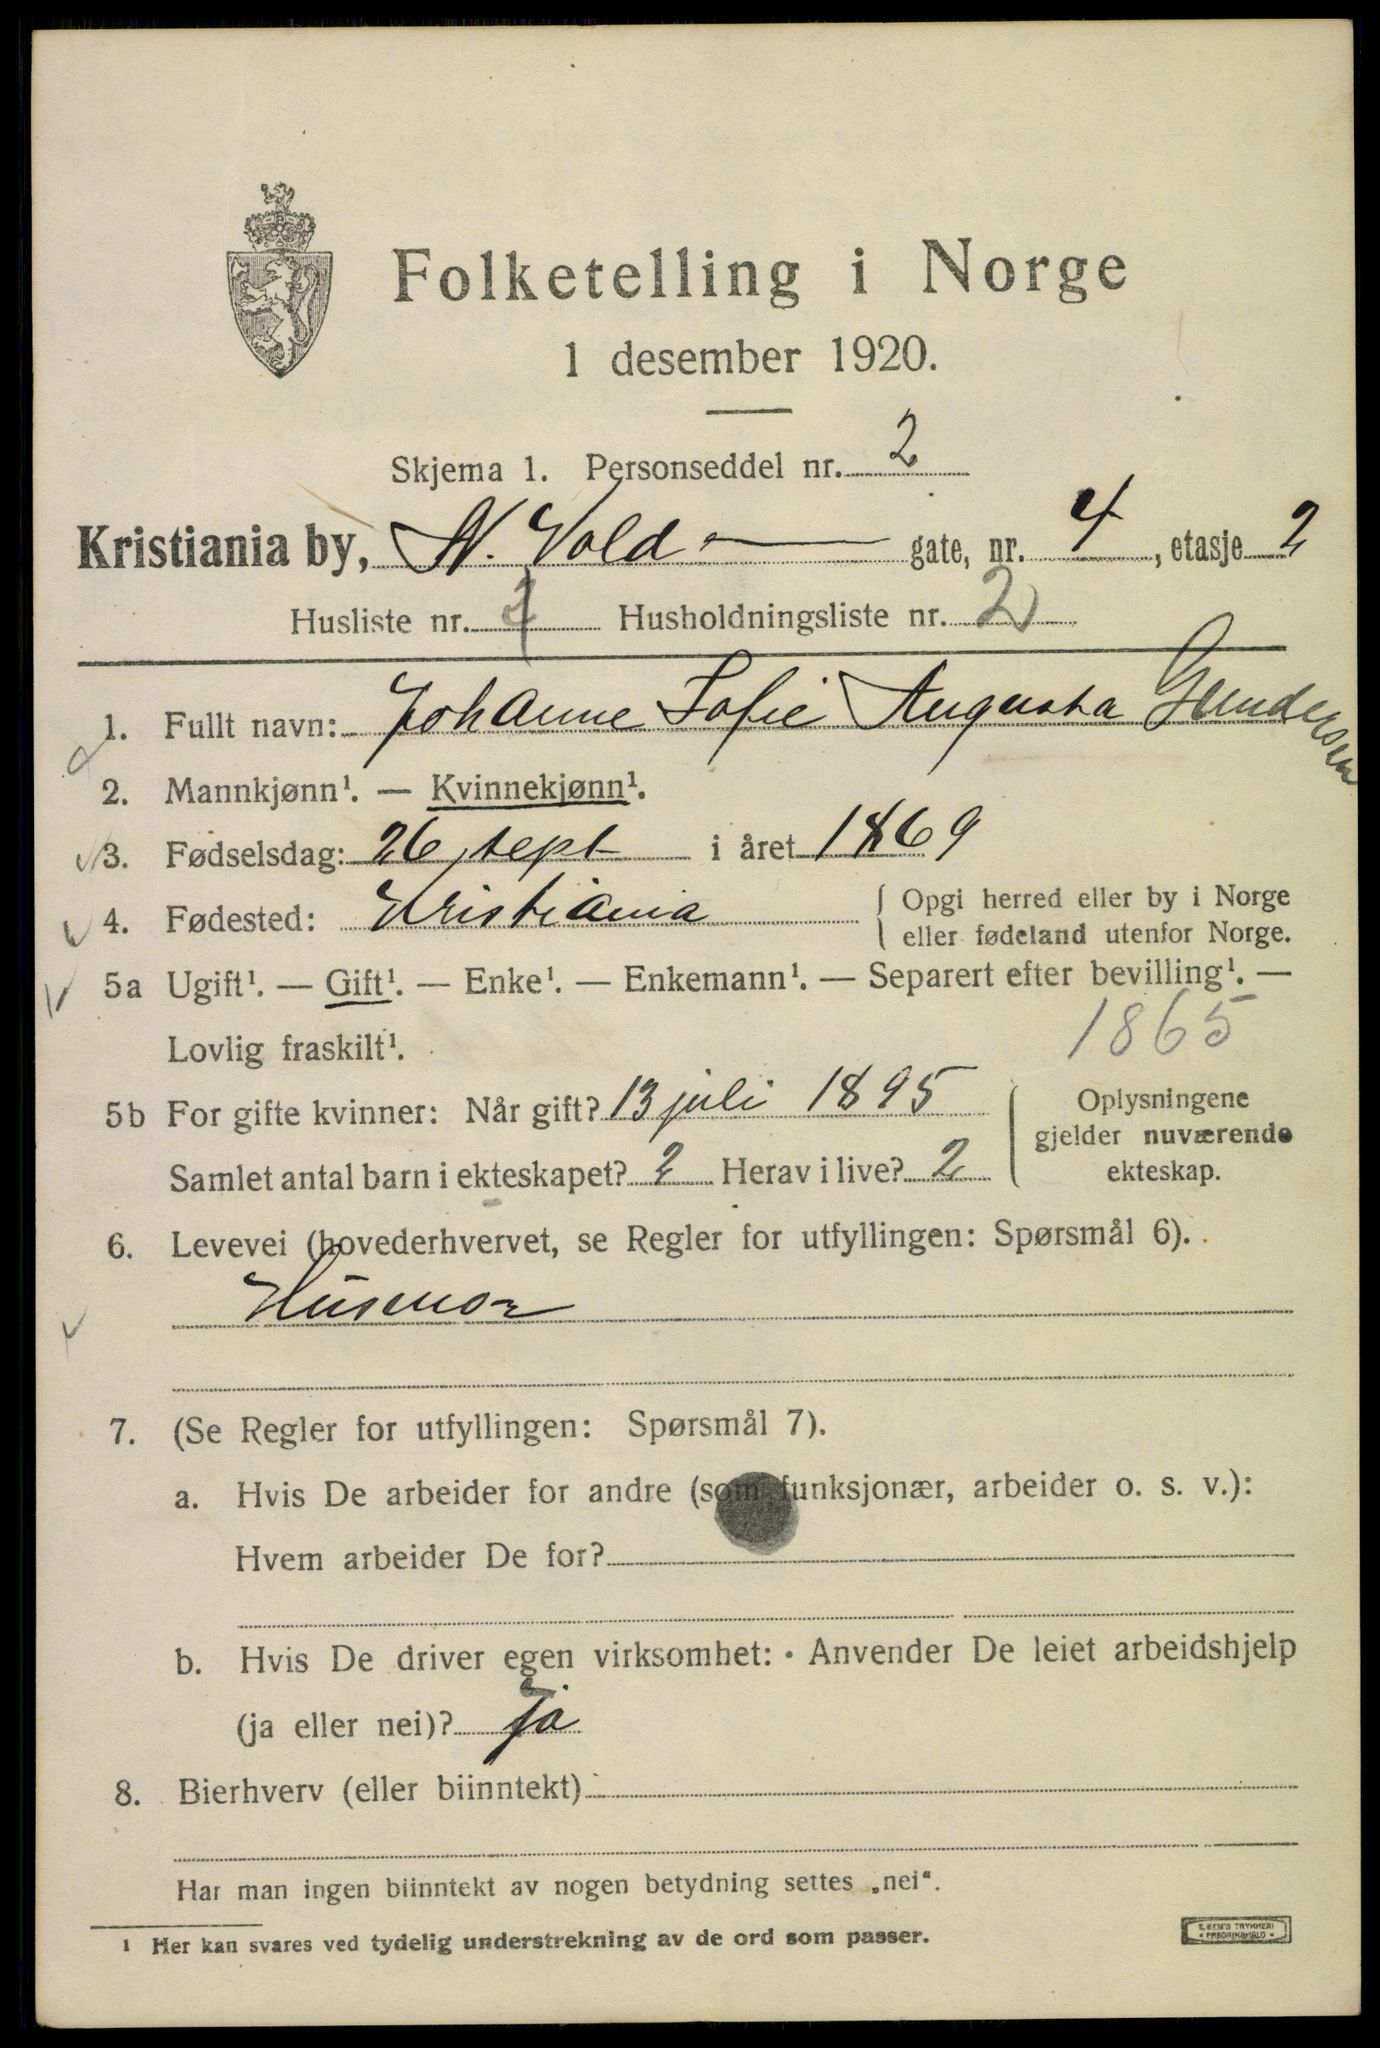 Folketelling i Norge
1 desember 1920.
Skjema 1. Personseddel nr. 2
Kristiania by, N. Vold gate, nr. 4, etasje 2
Husliste nr. 1 Husholdningsliste nr. 2
1. Fullt navn: Johanne Sofie Augusta Gundersen
2. Mannkjønn¹. — Kvinnekjønn¹.
3. Fødselsdag: 26 sept i året 1869
4. Fødested: Kristiania { Opgi herred eller by i Norge
eller fødeland utenfor Norge.
5a Ugift¹. — Gift¹. — Enke¹. — Enkemann¹. — Separert efter bevilling¹. —
Lovlig fraskilt¹. 1865
5b For gifte kvinner: Når gift? 13 juli 1895 { Oplysningene
gjelder nuværende
Samlet antal barn i ekteskapet? 2 Herav i live? 2 ekteskap.
6. Levevei (hovederhvervet, se Regler for utfyllingen: Spørsmål 6).
Husmor
7. (Se Regler for utfyllingen: Spørsmål 7).
a. Hvis De arbeider for andre (som funksjonær, arbeider o. s. v.):
Hvem arbeider De for?
b. Hvis De driver egen virksomhet: Anvender De leiet arbeidshjelp
(ja eller nei)? ja
8. Bierhverv (eller biinntekt)
Har man ingen biinntekt av nogen betydning settes „nei“.
¹ Her kan svares ved tydelig understrekning av de ord som passer.
E. SEM'S TRYKKERI
FREDRIKSHALD